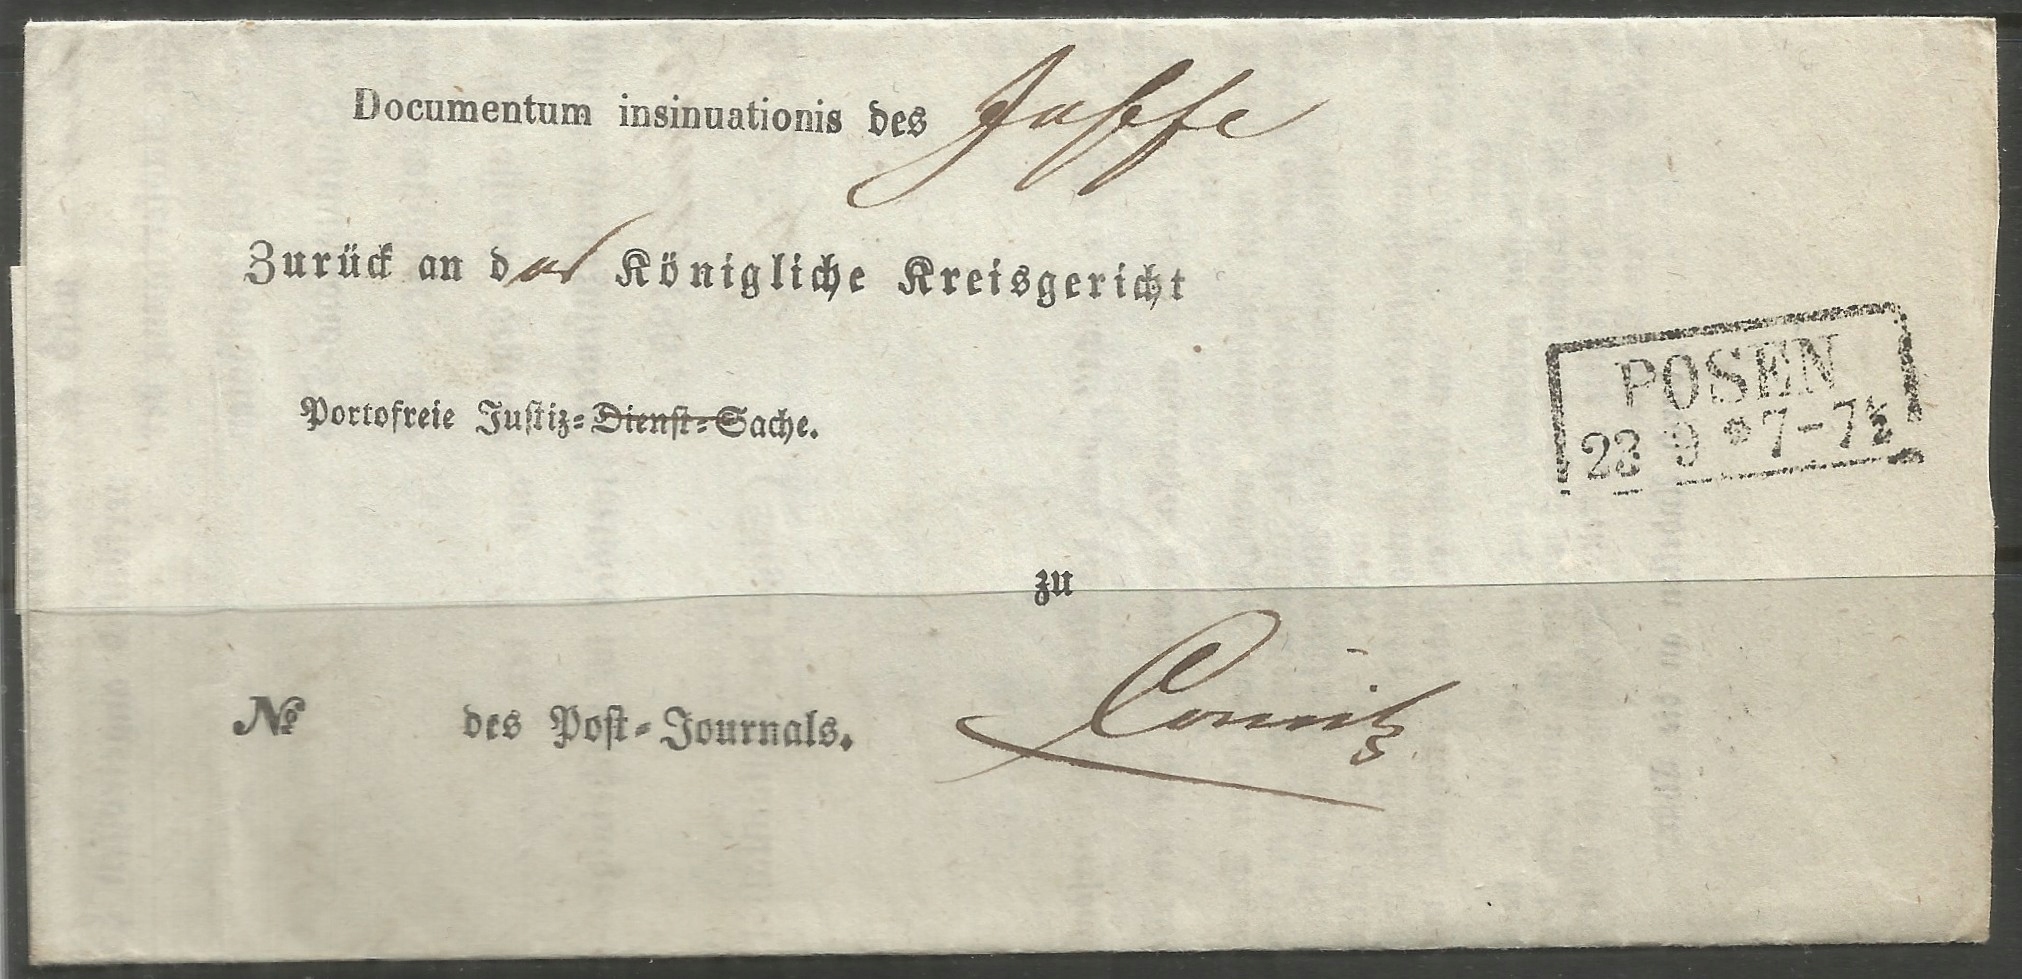 Documentum insinuationis des Jaffe
Zurück an das Königliche Kreisgericht
Portofreie Justiz-Dienst-Sache.
POSEN
23 9 * 7-7½
zu
Conitz
No des Post-Journals.